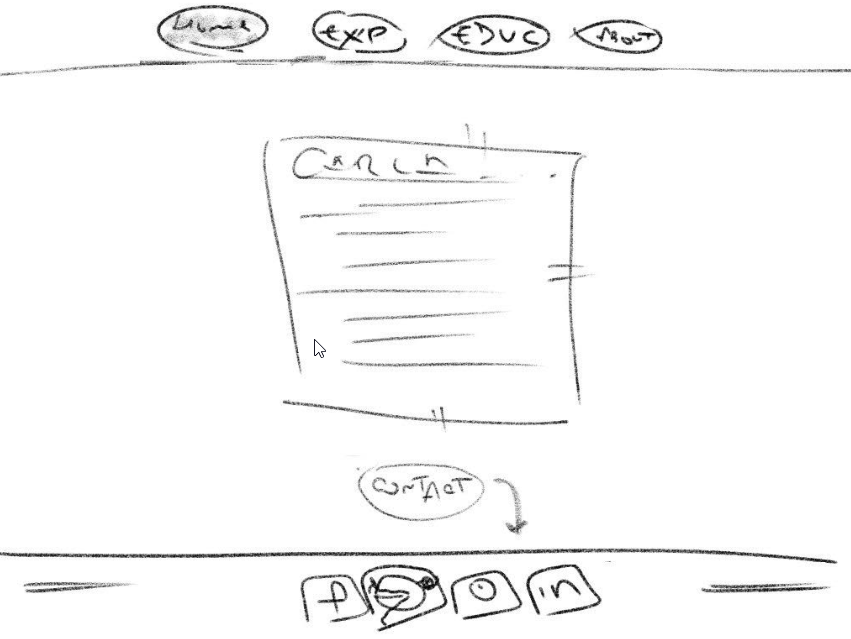 Home EXP EDUC ABOUT
CONTACT
f in